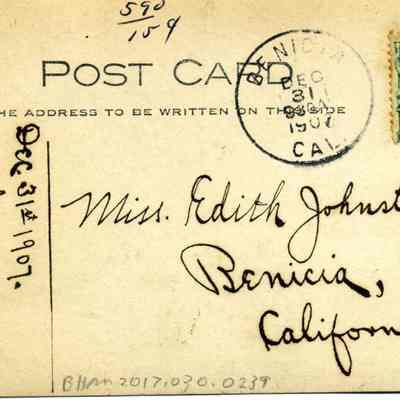 590
/ 15¢
POST CARD
HE ADDRESS TO BE WRITTEN ON THIS SIDE
BENICIA
DEC
31
1907
CAL.
Dec 31st 1907.
Miss. Edith Johnst
Benicia,
Californ
BHM 2017.030.0239